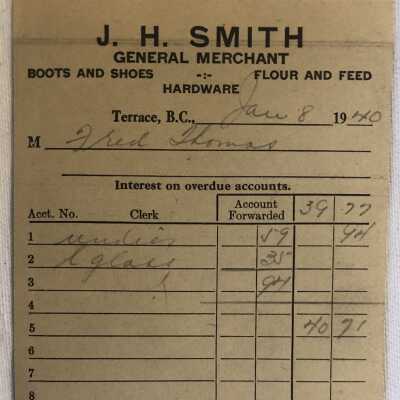 J. H. SMITH
GENERAL MERCHANT
BOOTS AND SHOES -:- FLOUR AND FEED
HARDWARE
Terrace, B.C., Jan 8 1940
M Fred Thomas
Interest on overdue accounts.
Acct. No. Clerk Account Forwarded 39 77
1 59 94
2 glass 35
3 94
4
5 40 71
6
7
8